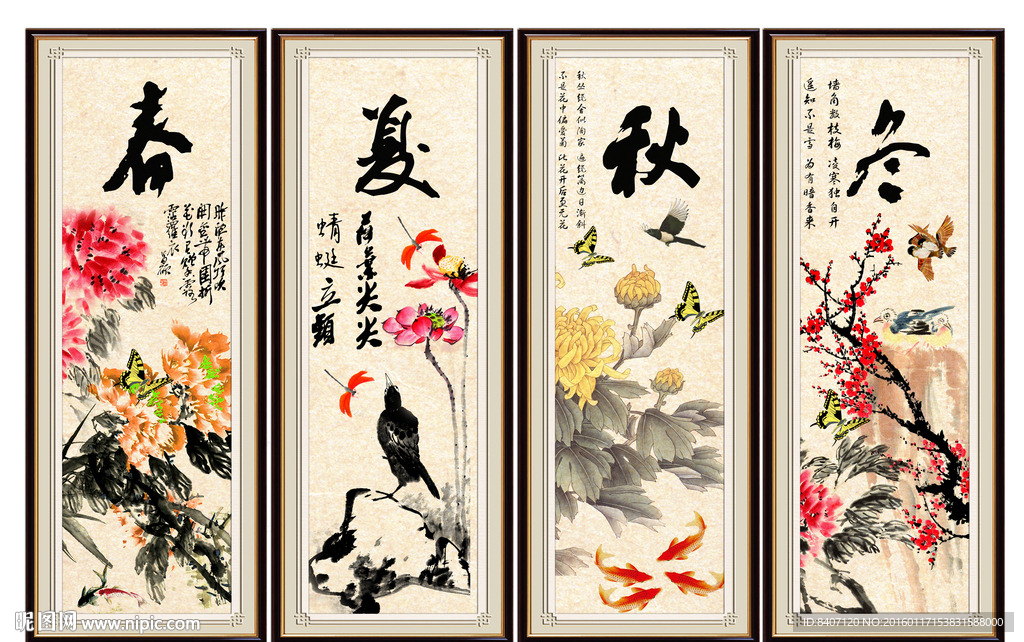 春
夏
荷葉尖尖
蜻蜓立頭
秋
秋丛绕舍似陶家 遍绕篱边日渐斜
不是花中偏爱菊 此花开后更无花
冬
墙角数枝梅 凌寒独自开
遥知不是雪 为有暗香来
昵图网 www.nipic.com
ID:8407120 NO:20160117153831588000